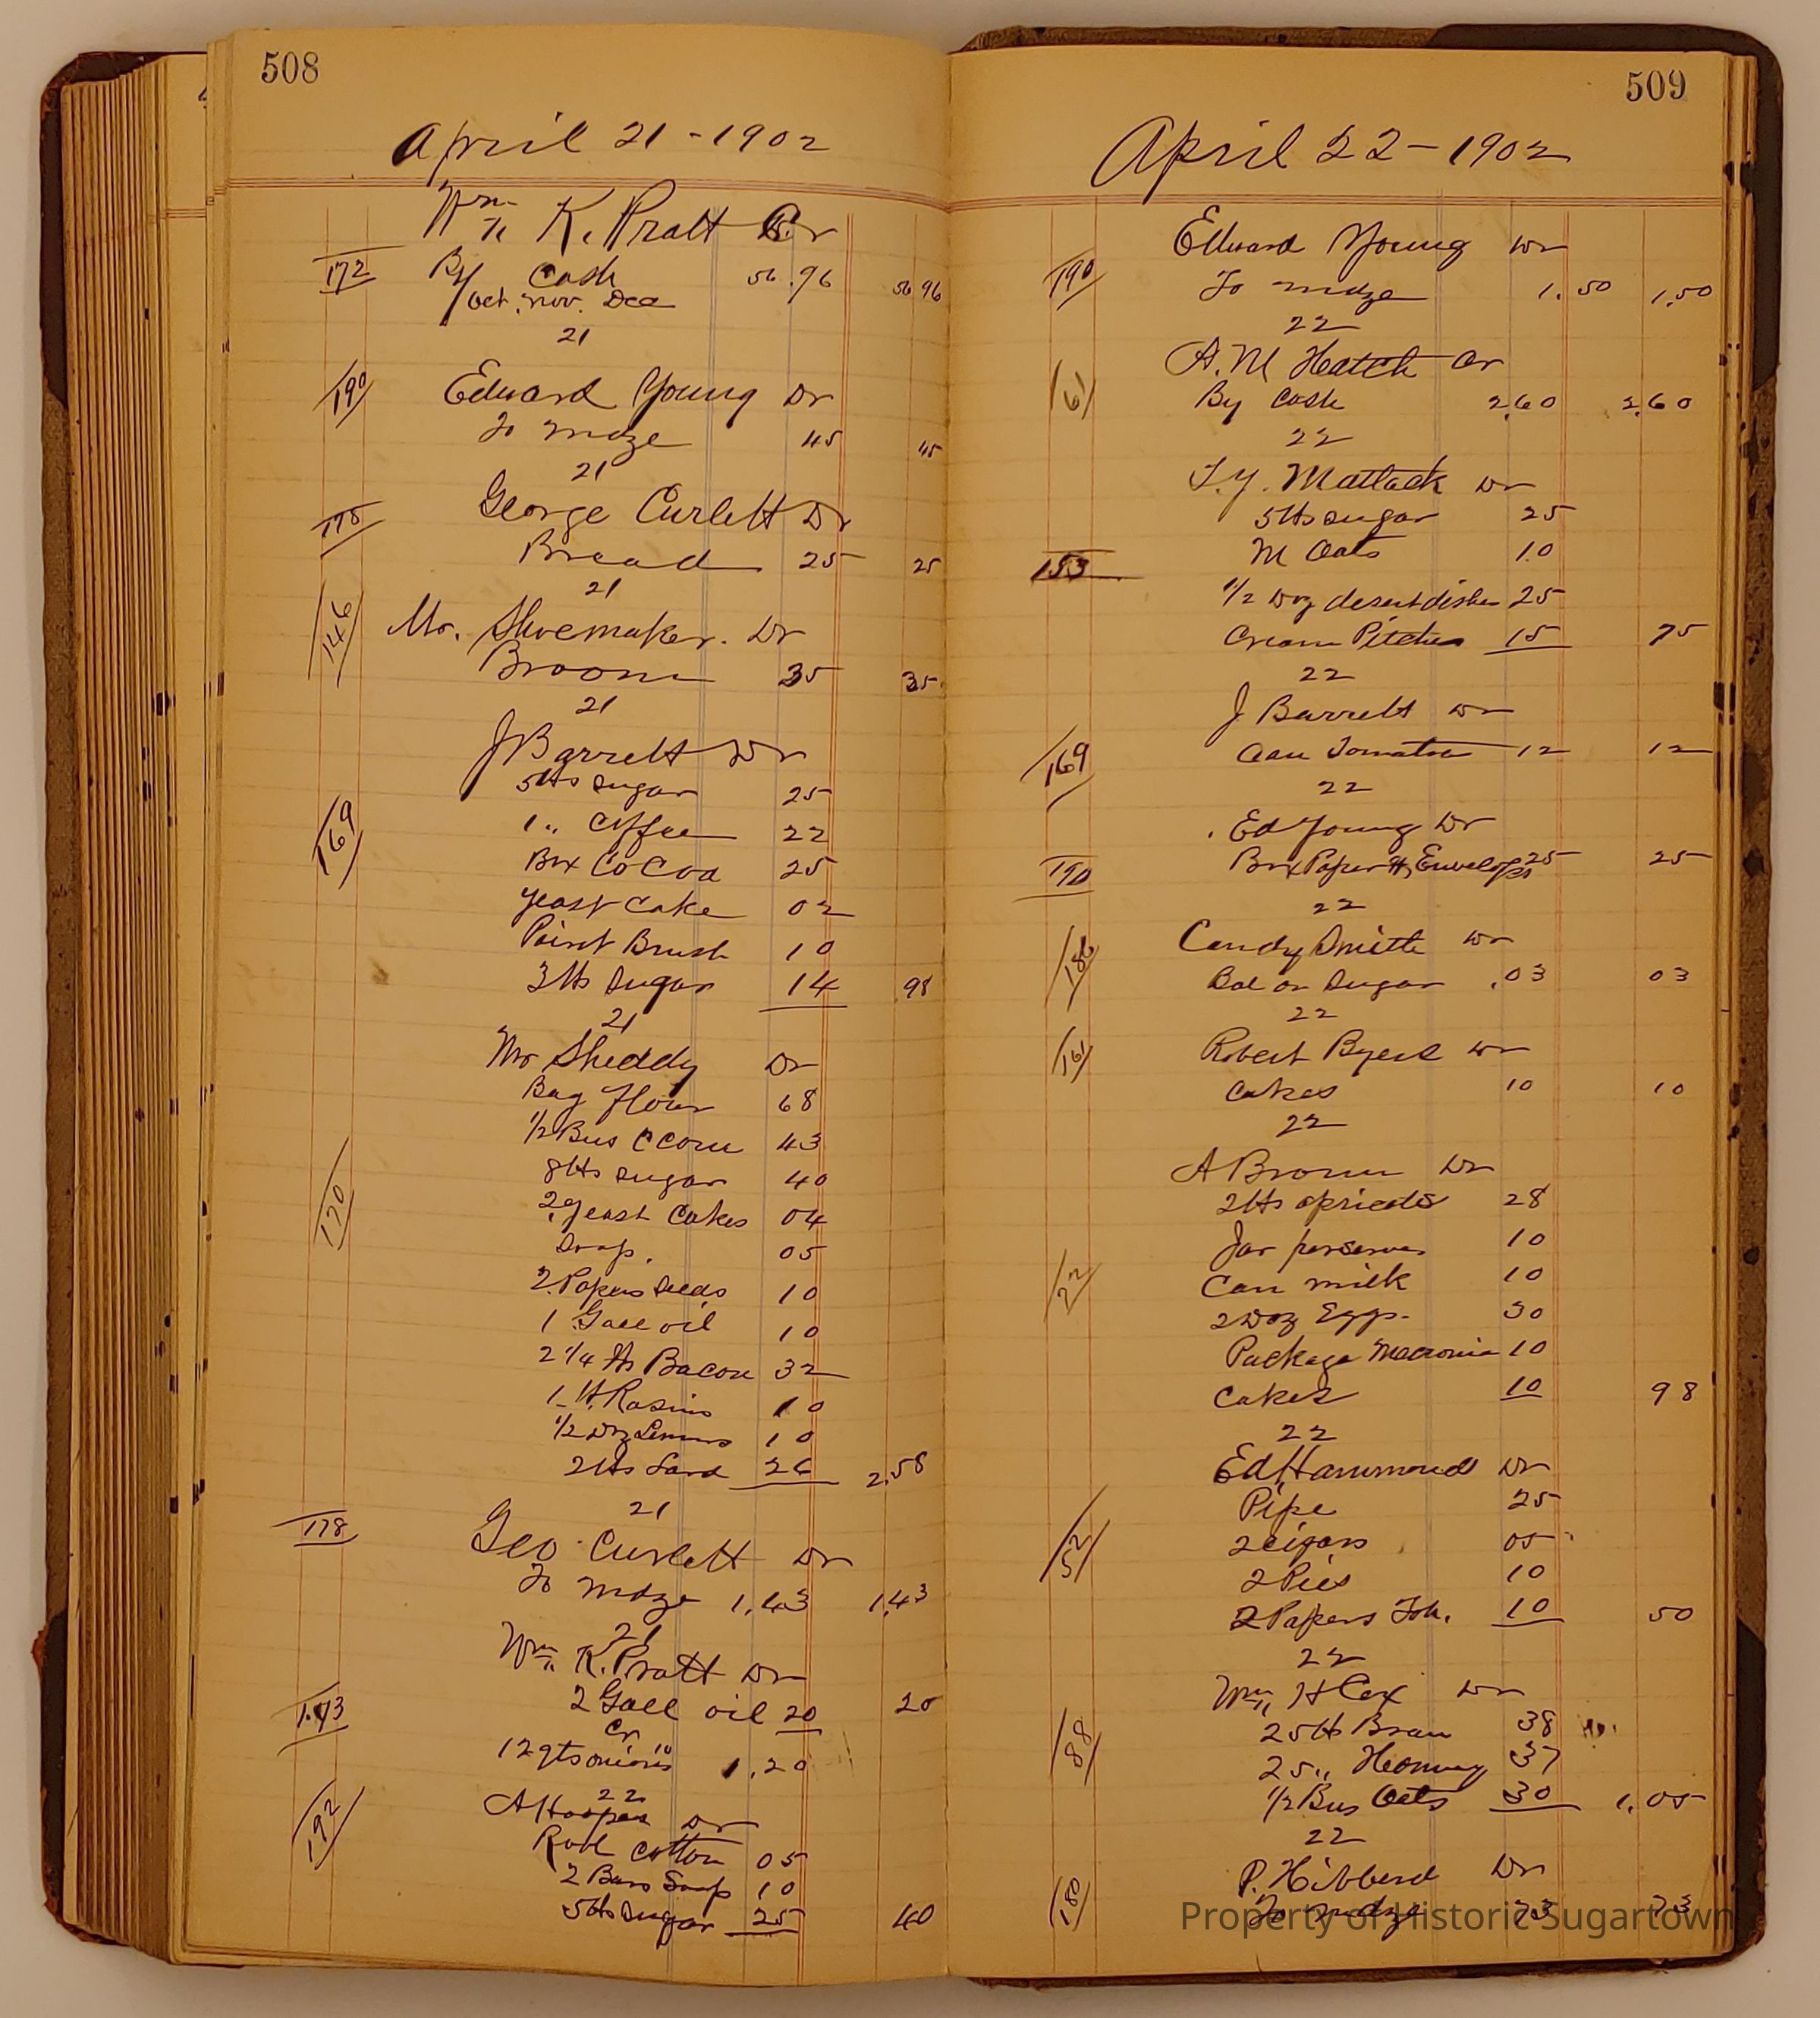 508
April 21 - 1902
Wm. K. Pratt Cr
172 By Cash 56.96 56 96
Oct. Nov. Dec
21
190 Edward Young Dr
To mdze 45 45
21
178 George Curlett Dr
Bread 25 25
21
146 Mr. Shoemaker. Dr
Broom 35 35
21
J Barrett Dr
5 lbs sugar 25
169 1 " Coffee 22
Box CoCoa 25
yeast Cake 02
Paint Brush 10
3 lbs Sugar 14 98
21
Mr Sheddy Dr
Bag flour 68
1/2 Bus C Corn 43
8 lbs sugar 40
170 2 yeast Cakes 04
Soap. 05
2 Papers seeds 10
1 Gall oil 10
2 1/4 lb Bacon 32
1 lb. Rasins 10
1/2 Doz Lemons 10
2 lbs Lard 26 2.58
21
178 Geo Curlett Dr
To mdze 1.43 1.43
21
Wm. K. Pratt Dr
173 2 Gall oil 20 20
Cr
12 qts onions 10 1.20
22
192 A Hoopes Dr
Roll cotton 05
2 Bars Soap 10
5 lbs sugar 25 40
509
April 22 - 1902
Edward Young Dr
190 To mdze 1.50 1.50
22
A. M Hatch Cr
61 By Cash 2.60 2.60
22
T. Y. Matlack Dr
5 lbs sugar 25
153 M Oats 10
1/2 Doz desert dishes 25
Cream Pitcher 15 75
22
J Barrett Dr
169 Can Tomatoe 12 12
22
Ed Young Dr
190 Box Paper & Envelopes 25 25
22
Candy Smith Dr
186 Bal on Sugar .03 03
22
161 Robert Byers Dr
Cakes 10 10
22
A Brown Dr
2 lbs apricots 28
Jar perserves 10
22 Can milk 10
2 Doz Eggs. 30
Package Macronia 10
Cakes 10 98
22
Ed Hammond Dr
Pipe 25
52 2 cigars 05
2 Pies 10
2 Papers Tob. 10 50
22
Wm. H Cox Dr
88 25 lb Bran 38
25 " Hominy 37
1/2 Bus Oats 30 1.05
22
P. Hibberd Dr
180 To mdze 73 73
Property of Historic Sugartown